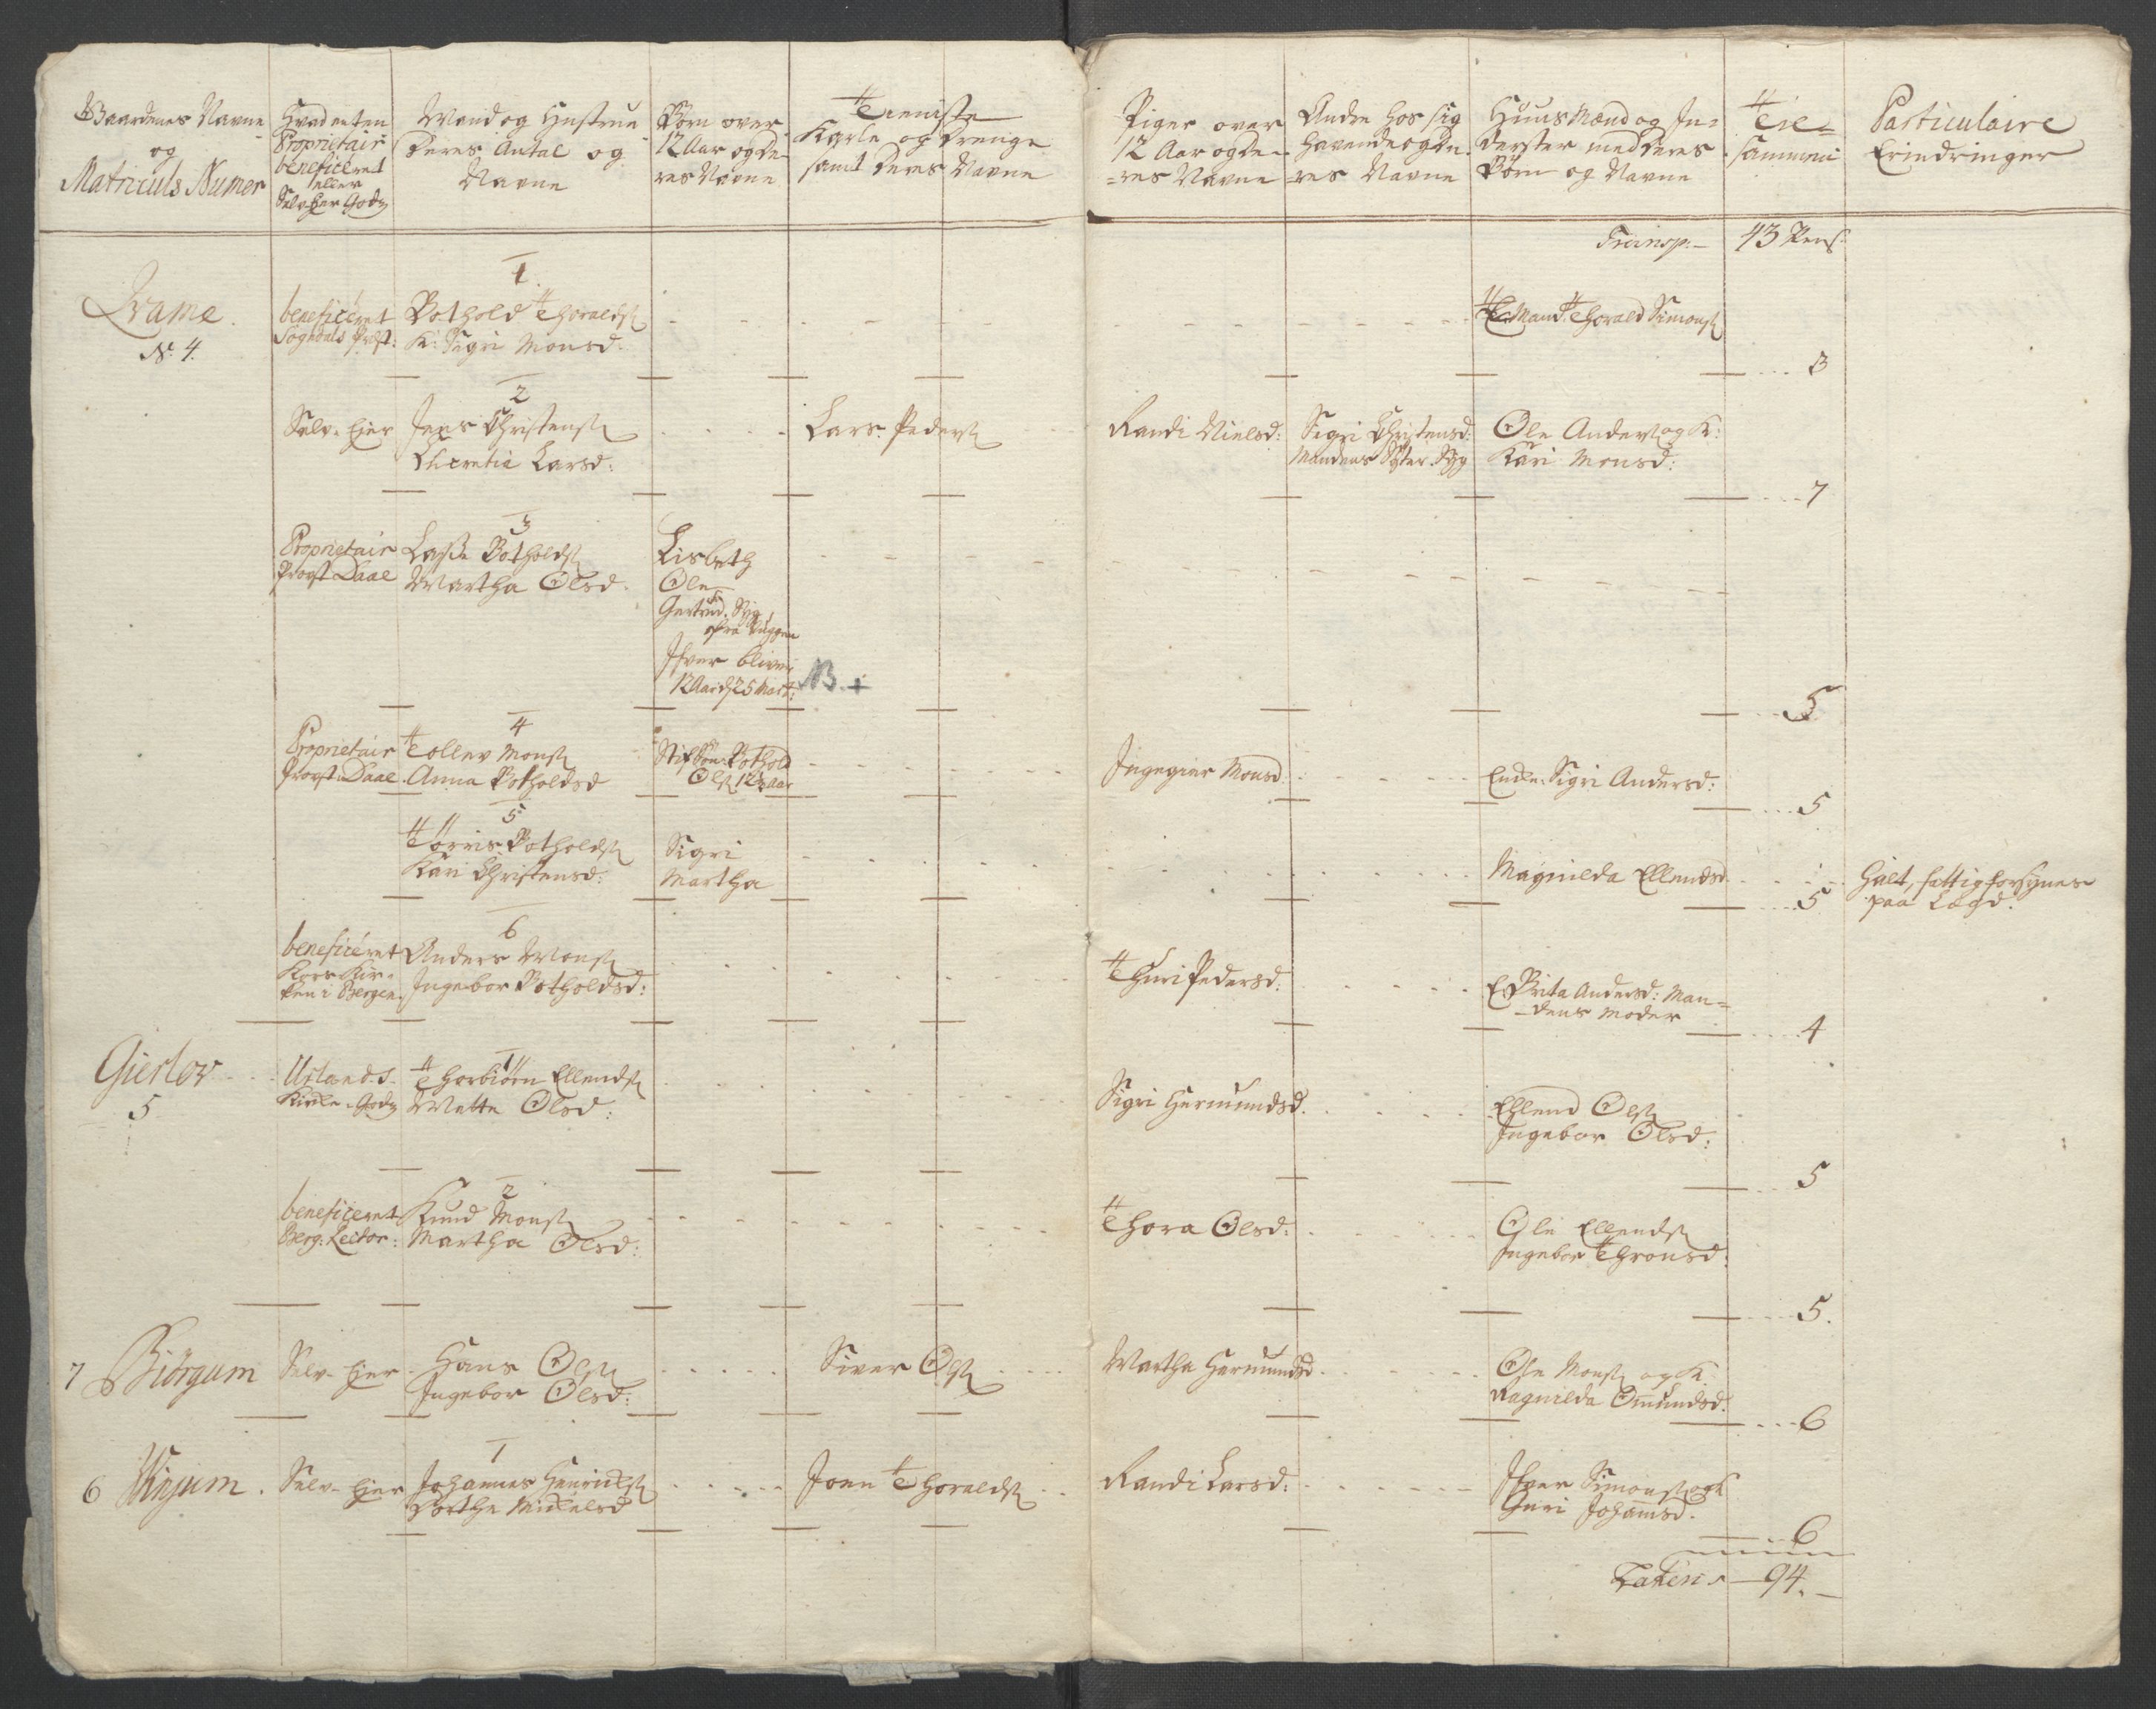 Gaardenes Navne
og
Matriculs Numer
Hvad enten
Proprietair
beneficeret
eller
Selv-Eyer Gods
Mand og Hustrue
Deres Antal og
Navne
Børn over
12 Aar og De-
res Navne
Tieniste
Karle og Drenge
samt Deres Navne
Piger over
12 Aar og De-
-res Navne
Andre hos sig
havende og De-
-res Navne
Huus Mænd og In-
derster med deres
Børn og Navne
Til-
sammen
Particulaire
Erindringer
Transp:- 43 Pers:
Qvame
No. 4.
1
beneficeret
Sogndals Præst:
Bothold Thoralds.
K: Sigri Monsd:
Mand Thorald Simons.
3
2
Selv-Ejer
Jens Christens.
Lucretia Larsd:
Lars Peders.
Randi Nielsd:
Sigri Christensd:
Mandens Syster. Syg
Ole Anders. og K:
Kari Monsd:
7
3
Proprietair
Provst Daae
Lasse Botholds.
Martha Olsd.
Lisbeth
Ole
Gertrud. Syg
fra Vuggen
Ifver bliver
12 Aar d. 25 Mart:
NB. +
5
4
Proprietair
Provst Daae
Tollev Mons.
Anna Botholdsd
Stif Søn Bothold
Ols. 12½ Aar
Ingegier Monsd.
Enke Sigri Andersd:
5
5
Tørris Botholds.
Kari Christensd:
Sigri
Martha
Magnilda Ellendsd.
5
Galt, fattig forsynes
paa Lægd.
6
beneficeret
Kors Kir-
ken i Bergen.
Anders Mons.
Ingebor Botholdsd:
Thuri Pedersd:
E. Brita Andersd: Man-
-dens Moder
4
Gierlov
5
1
Urlands
Kirke-Gods
Thorbiørn Ellends.
Mette Olsd:
Sigri Hermundsd.
Ellend Ols.
Ingebor Olsd:
5
2
beneficeret
Berg: Lector:
Knud Mons.
Martha Olsd:
Thora Olsd:
Ole Ellends.
Ingebor Thronsd:
5.
7 Biørgum
Selv-Ejer
Hans Ols.
Ingebor Olsd:
Siver Ols.
Martha Hermundsd
Ole Mons. og K:
Ragnilda Omundsd:
6
6 Winjum.
1
Selv-Ejer
Johannes Henricks.
Dorthe Mickelsd
Joen Thoralds.
Randi Larsd:
Ifver Simons. og K
Guri Johannsd.
6
Lateris 94.